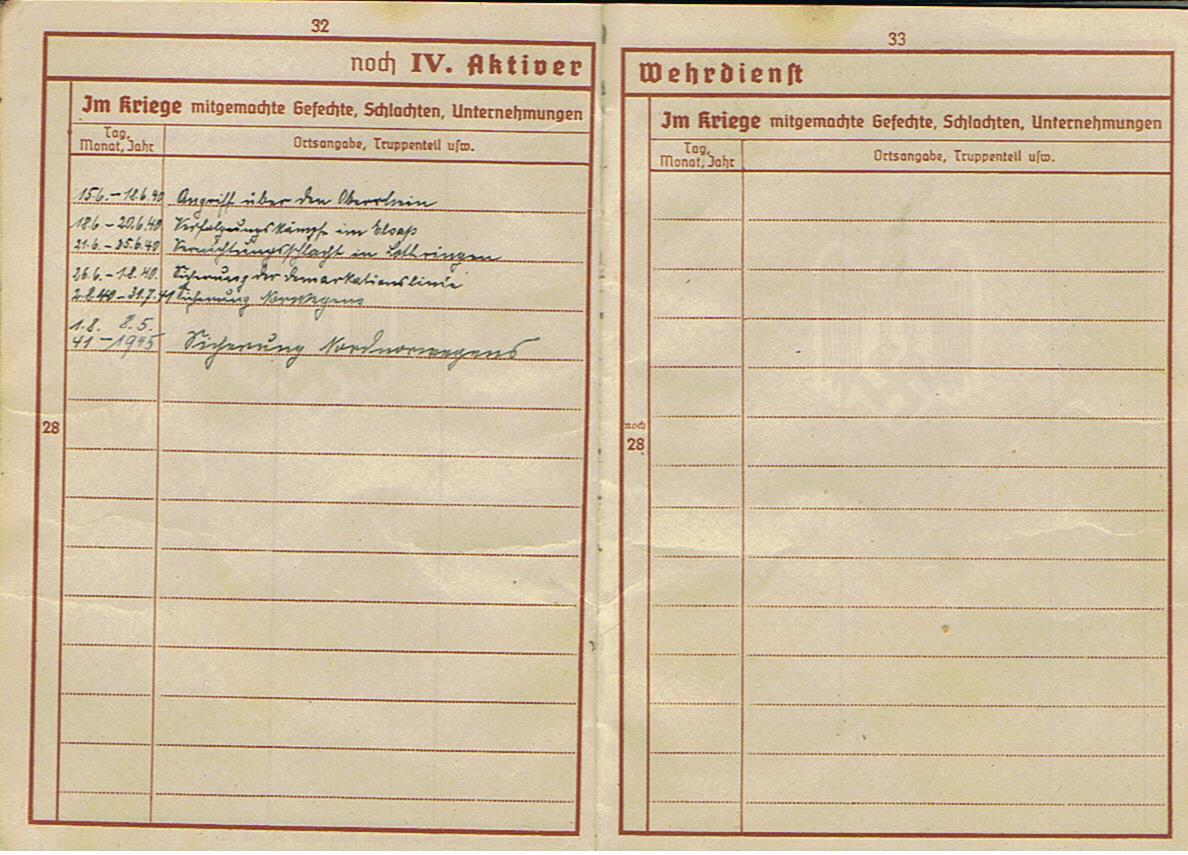 32
noch IV. Aktiver
Im Kriege mitgemachte Gefechte, Schlachten, Unternehmungen
Tag,
Monat, Jahr
Ortsangabe, Truppenteil usw.
15.6. – 18.6.40 Angriff über den Oberrhein
18.6. – 20.6.40 Verfolgungskämpfe im Elsaß
21.6. – 25.6.40 Vernichtungsschlacht in Lothringen
26.6. – 1.8.40. Sicherung der Demarkationslinie
2.8.40 – 31.7.41 Sicherung Norwegens
1.8. 8.5.
41 – 1945 Sicherung Nordnorwegens
28
33
Wehrdienst
Im Kriege mitgemachte Gefechte, Schlachten, Unternehmungen
Tag,
Monat, Jahr
Ortsangabe, Truppenteil usw.
noch
28